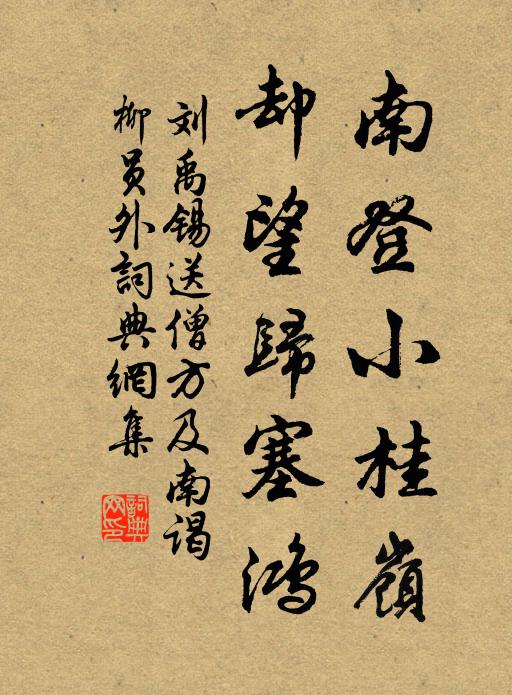 南登小桂嶺
却望歸塞鴻
刘禹锡送僧方及南谒
柳員外詞典網集
詞典網印